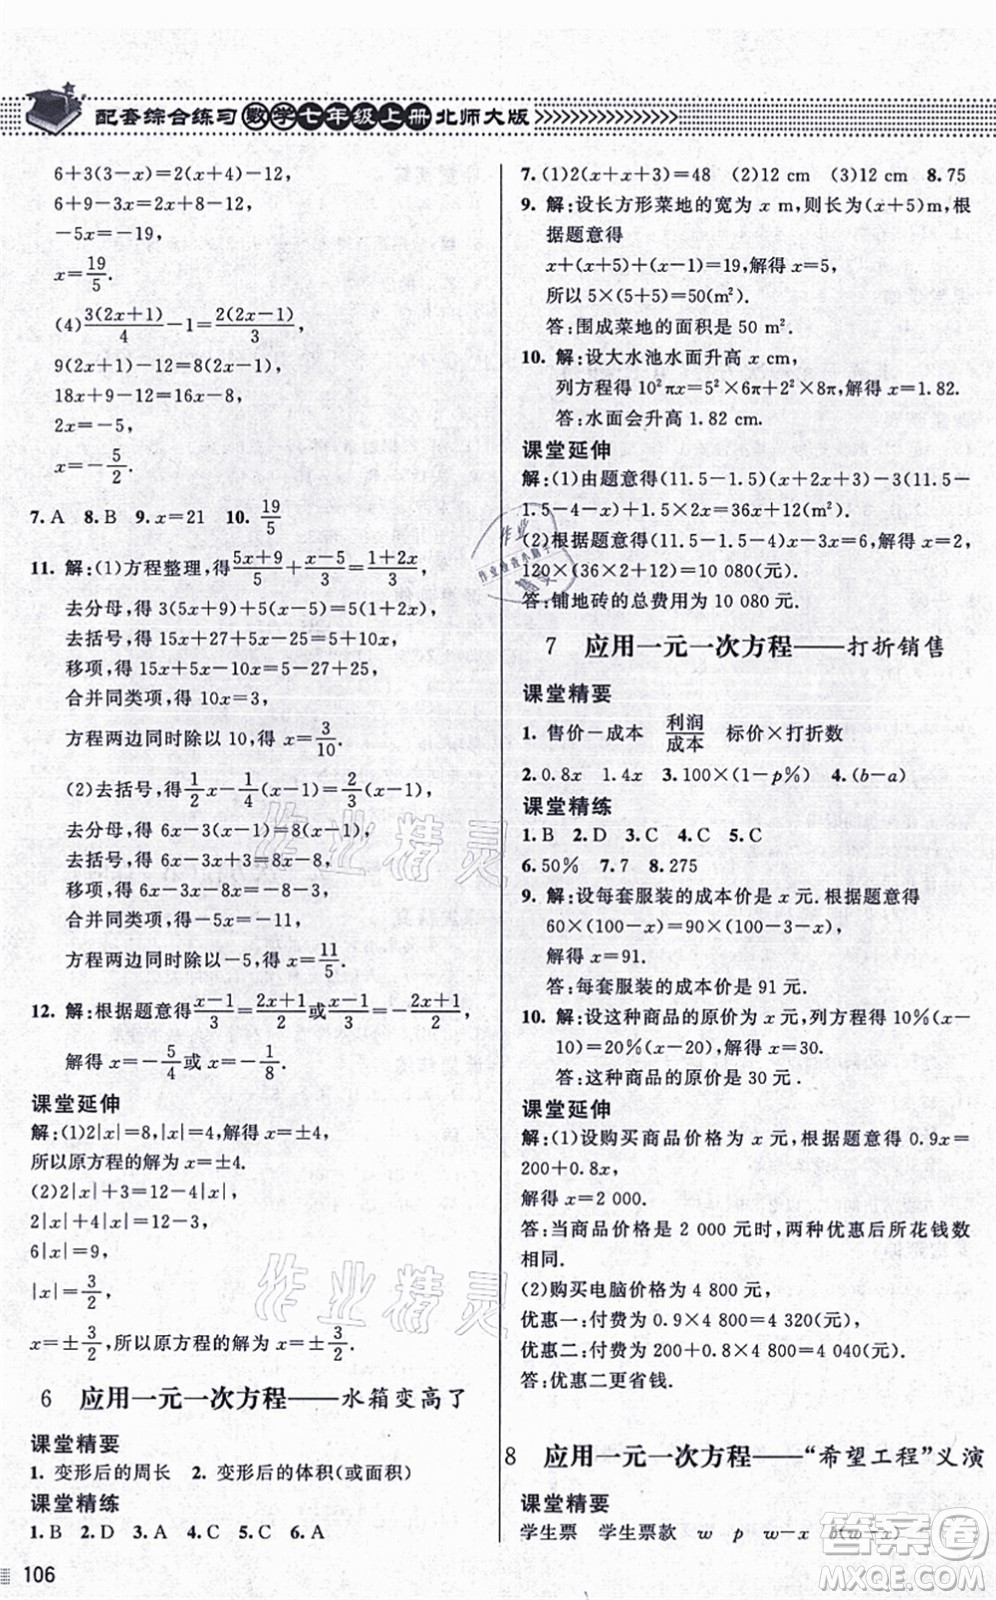 配套综合练习 数学七年级上册 北师大版
6+3(3-x)=2(x+4)-12,
6+9-3x=2x+8-12,
-5x=-19,
x=19/5.
(4)3(2x+1)/4-1=2(2x-1)/3,
9(2x+1)-12=8(2x-1),
18x+9-12=16x-8,
2x=-5,
x=-5/2.
7.A 8.B 9.x=21 10.19/5
11.解:(1)方程整理,得(5x+9)/5+(x-5)/3=(1+2x)/3,
去分母,得 3(5x+9)+5(x-5)=5(1+2x),
去括号,得 15x+27+5x-25=5+10x,
移项,得 15x+5x-10x=5-27+25,
合并同类项,得 10x=3,
方程两边同时除以 10,得 x=3/10.
(2)去括号,得1/2x-1/4x+1/4=2/3x-2/3,
去分母,得 6x-3x+3=8x-8,
去括号,得 6x-3x+3=8x-8,
移项,得 6x-3x-8x=-8-3,
合并同类项,得 -5x=-11,
方程两边同时除以-5,得 x=11/5.
12.解:根据题意得(x-1)/3=(2x+1)/2或(x-1)/3=-(2x+1)/2,
解得 x=-5/4或 x=-1/8.
课堂延伸
解:(1)2|x|=8,|x|=4,解得 x=±4,
所以原方程的解为 x=±4.
(2)2|x|+3=12-4|x|,
2|x|+4|x|=12-3,
6|x|=9,
|x|=3/2,
x=±3/2,所以原方程的解为 x=±3/2.
6 应用一元一次方程——水箱变高了
课堂精要
1. 变形后的周长 2. 变形后的体积(或面积)
课堂精练
1.B 2.D 3.A 4.C 5.C 6.A
106
7.(1)2(x+x+3)=48 (2)12 cm (3)12 cm 8.75
9.解:设长方形菜地的宽为 x m,则长为(x+5)m,根
据题意得
x+(x+5)+(x-1)=19,解得 x=5,
所以 5×(5+5)=50(m²).
答:围成菜地的面积是 50 m².
10.解:设大水池水面升高 x cm,
列方程得 10²πx=5²×6π+2²×8π,解得 x=1.82.
答:水面会升高 1.82 cm.
课堂延伸
解:(1)由题意得(11.5-1.5)(x+2+3)-3(11.5-
1.5-4-x)+1.5×2=36x=36,解得 x=2.
(2)根据题意得(11.5-1.5)(2+2+3)×80+
120×(36×2+12)=10 080(元).
答:铺地砖的总费用为 10 080 元.
7 应用一元一次方程——打折销售
课堂精要
1. 售价-成本 利润/成本 标价×打折数
2.0.8x 1.4x 3.100×(1-p%) 4.(b-a)
课堂精练
1.B 2.D 3.C 4.C 5.C
6.50% 7.7 8.275
9.解:设每套服装的成本价是 x 元.根据题意得
60×(100-x)=90×(100-3-x),
解得 x=91.
答:每套服装的成本价是 91 元.
10.解:设这种商品的原价为 x 元,列方程得 10%(x-
10)=20%(x-20),解得 x=30.
答:这种商品的原价是 30 元.
课堂延伸
解:(1)设购买商品价格为 x 元,根据题意得 0.9x=
200+0.8x,
解得 x=2 000.
答:当商品价格是 2 000 元时,两种优惠后所花钱数
相同.
(2)购买电脑价格为 4 800 元,
优惠一:付费为 0.9×4 800=4 320(元),
优惠二:付费为 200+0.8×4 800=4 040(元).
答:优惠二更省钱.
8 应用一元一次方程——“希望工程”义演
课堂精要
学生票 学生票款 w p w-x b(w-x)
作业精灵
作业精灵
答案卷
MXQE.COM